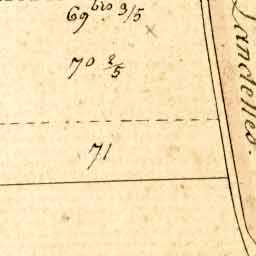 69 bis 3/5
70 2/5
71
Landelles.